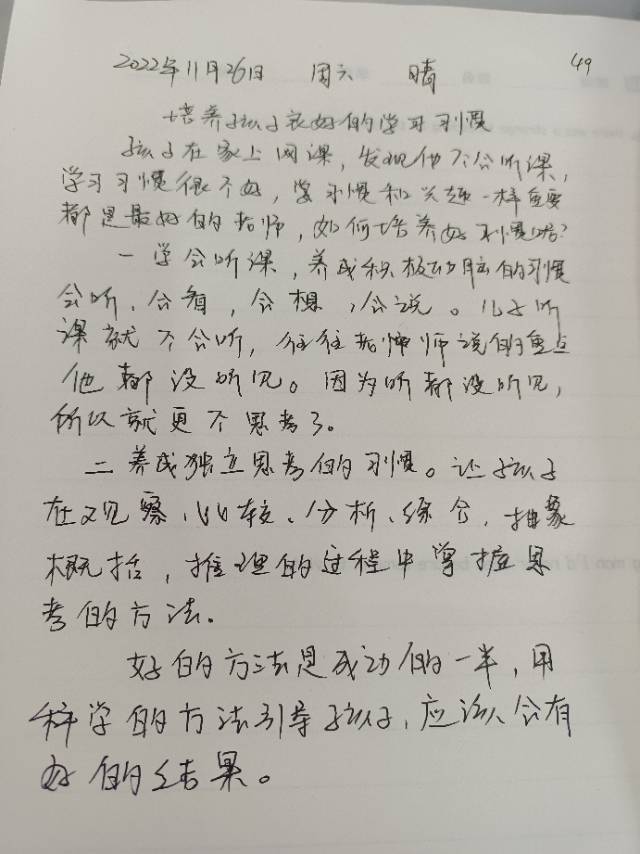 49
2022年11月26日 周六 晴
培养孩子良好的学习习惯
孩子在家上网课，发现他不会听课，
学习习惯很不好，学习惯和兴趣一样重要
都是最好的老师，如何培养好习惯呢？
一学会听课，养成积极动脑的习惯
会听、会看，会想，会说。儿子听
课就不会听，往往老师师说的重点
他都没听见。因为听都没听见，
所以就更不思考了。
二养成独立思考的习惯。让孩子
在观察、比较、分析、综合，抽象
概括，推理的过程中掌握思
考的方法。
好的方法是成功的一半，用
科学的方法引导孩子，应该会有
好的结果。